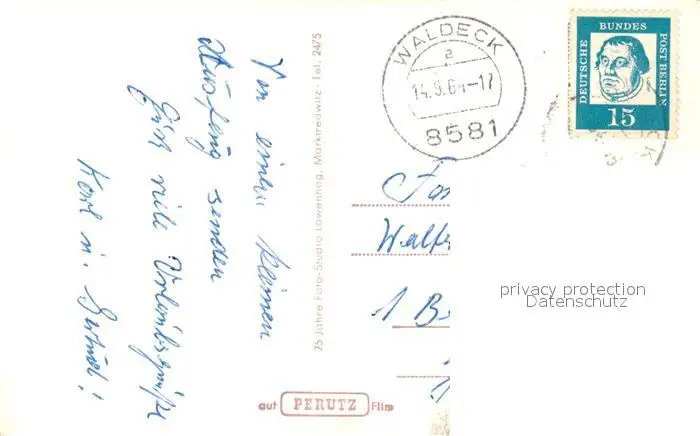 Von einem kleinen
Ausflug senden
Euch viele Urlaubsgrüße
Karl u. Gertrud!
75 Jahre Foto-Studio Löwenhag, Marktredwitz · Tel. 2475
WALDECK
a
14.5.64-17
8581
DEUTSCHE BUNDES POST BERLIN
15
CK
Fam
Walt
1 B
privacy protection
Datenschutz
auf PERUTZ Film